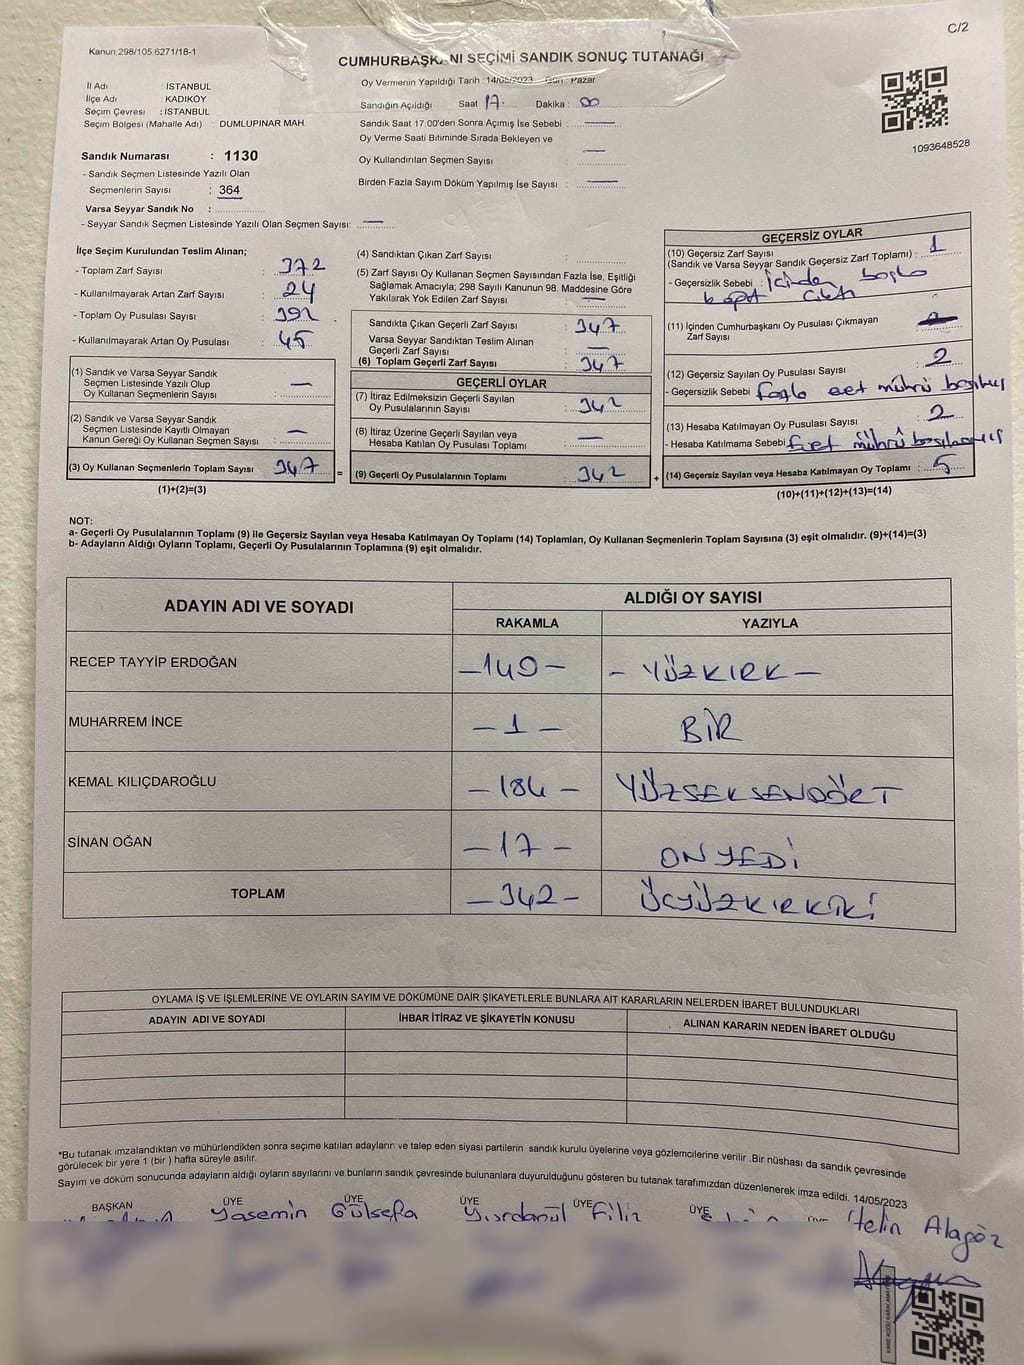 C/2
Kanun 298/105 6271/18-1
CUMHURBAŞKANI SEÇİMİ SANDIK SONUÇ TUTANAĞI
İl Adı : İSTANBUL
İlçe Adı : KADIKÖY
Seçim Çevresi : İSTANBUL
Seçim Bölgesi (Mahalle Adı) : DUMLUPINAR MAH.
Sandık Numarası : 1130
- Sandık Seçmen Listesinde Yazılı Olan
Seçmenlerin Sayısı : 364
Varsa Seyyar Sandık No :
- Seyyar Sandık Seçmen Listesinde Yazılı Olan Seçmen Sayısı: —
Oy Vermenin Yapıldığı Tarih : 14/05/2023 Gün : Pazar
Sandığın Açıldığı Saat 17 Dakika : 00
Sandık Saat 17.00'den Sonra Açımış İse Sebebi : —
Oy Verme Saati Bitiminde Sırada Bekleyen ve
Oy Kullandırılan Seçmen Sayısı : —
Birden Fazla Sayım Döküm Yapılmış İse Sayısı : —
1093648528
İlçe Seçim Kurulundan Teslim Alınan;
- Toplam Zarf Sayısı : 372
- Kullanılmayarak Artan Zarf Sayısı : 24
- Toplam Oy Pusulası Sayısı : 392
- Kullanılmayarak Artan Oy Pusulası : 45
(1) Sandık ve Varsa Seyyar Sandık
Seçmen Listesinde Yazılı Olup
Oy Kullanan Seçmenlerin Sayısı : —
(2) Sandık ve Varsa Seyyar Sandık
Seçmen Listesinde Kayıtlı Olmayan
Kanun Gereği Oy Kullanan Seçmen Sayısı : —
(3) Oy Kullanan Seçmenlerin Toplam Sayısı : 347 =
(1)+(2)=(3)
(4) Sandıktan Çıkan Zarf Sayısı :
(5) Zarf Sayısı Oy Kullanan Seçmen Sayısından Fazla İse, Eşitliği
Sağlamak Amacıyla; 298 Sayılı Kanunun 98. Maddesine Göre
Yakılarak Yok Edilen Zarf Sayısı : —
Sandıkta Çıkan Geçerli Zarf Sayısı : 347
Varsa Seyyar Sandıktan Teslim Alınan
Geçerli Zarf Sayısı : —
(6) Toplam Geçerli Zarf Sayısı : 347
GEÇERLİ OYLAR
(7) İtiraz Edilmeksizin Geçerli Sayılan
Oy Pusulalarının Sayısı : 342
(8) İtiraz Üzerine Geçerli Sayılan veya
Hesaba Katılan Oy Pusulası Toplamı : —
(9) Geçerli Oy Pusulalarının Toplamı : 342 +
GEÇERSİZ OYLAR
(10) Geçersiz Zarf Sayısı
(Sandık ve Varsa Seyyar Sandık Geçersiz Zarf Toplamı) : 1
- Geçersizlik Sebebi : içinden
(11) İçinden Cumhurbaşkanı Oy Pusulası Çıkmayan
Zarf Sayısı
(12) Geçersiz Sayılan Oy Pusulası Sayısı : 2
- Geçersizlik Sebebi fazla evet mührü basılmış
(13) Hesaba Katılmayan Oy Pusulası Sayısı : 2
- Hesaba Katılmama Sebebi : Evet mührü basılmamış
(14) Geçersiz Sayılan veya Hesaba Katılmayan Oy Toplamı : 5
(10)+(11)+(12)+(13)=(14)
NOT:
a- Geçerli Oy Pusulalarının Toplamı (9) ile Geçersiz Sayılan veya Hesaba Katılmayan Oy Toplamı (14) Toplamları, Oy Kullanan Seçmenlerin Toplam Sayısına (3) eşit olmalıdır. (9)+(14)=(3)
b- Adayların Aldığı Oyların Toplamı, Geçerli Oy Pusulalarının Toplamına (9) eşit olmalıdır.
ADAYIN ADI VE SOYADI
ALDIĞI OY SAYISI
RAKAMLA YAZIYLA
RECEP TAYYİP ERDOĞAN –140– – YÜZKIRK –
MUHARREM İNCE – 1 – BİR
KEMAL KILIÇDAROĞLU – 184 – YÜZSEKSENDÖRT
SİNAN OĞAN – 17 – ONYEDİ
TOPLAM – 342 – ÜÇYÜZKIRKİKİ
OYLAMA İŞ VE İŞLEMLERİNE VE OYLARIN SAYIM VE DÖKÜMÜNE DAİR ŞİKAYETLERLE BUNLARA AİT KARARLARIN NELERDEN İBARET BULUNDUKLARI
ADAYIN ADI VE SOYADI İHBAR İTİRAZ VE ŞİKAYETİN KONUSU ALINAN KARARIN NEDEN İBARET OLDUĞU
*Bu tutanak imzalandıktan ve mühürlendikten sonra seçime katılan adayların ve talep eden siyasi partilerin sandık kurulu üyelerine veya gözlemcilerine verilir .Bir nüshası da sandık çevresinde
görülecek bir yere 1 (bir ) hafta süreyle asılır.
Sayım ve döküm sonucunda adayların aldığı oyların sayılarını ve bunların sandık çevresinde bulunanlara duyurulduğunu gösteren bu tutanak tarafımızdan düzenlenerek imza edildi. 14/05/2023
BAŞKAN ÜYE ÜYE ÜYE ÜYE ÜYE ÜYE
Yasemin Gülsefa Yurdagül Filiz Alagöz